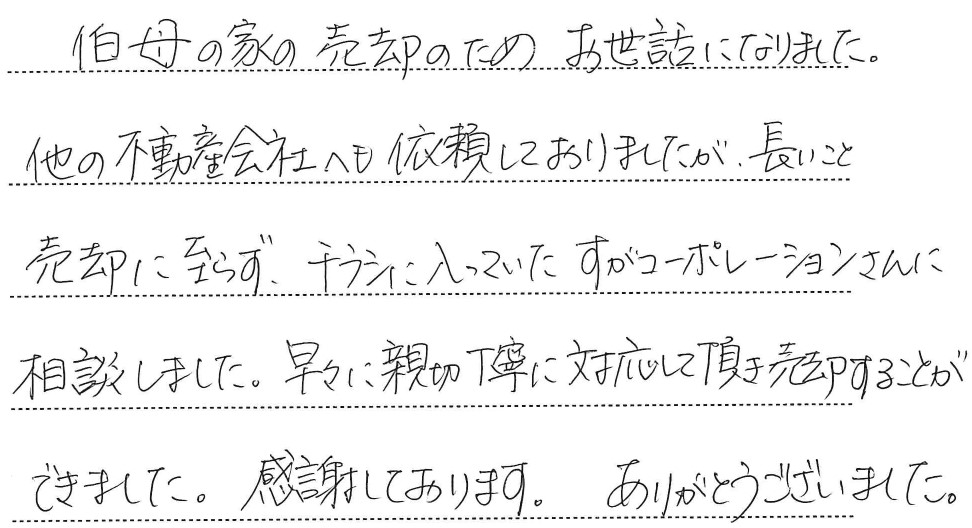 伯母の家の売却のため お世話になりました。
他の不動産会社へも依頼しておりましたが、長いこと
売却に至らず、チラシに入っていた すがコーポレーションさんに
相談しました。早々に親切丁寧に対応して頂き売却することが
できました。 感謝しております。 ありがとうございました。